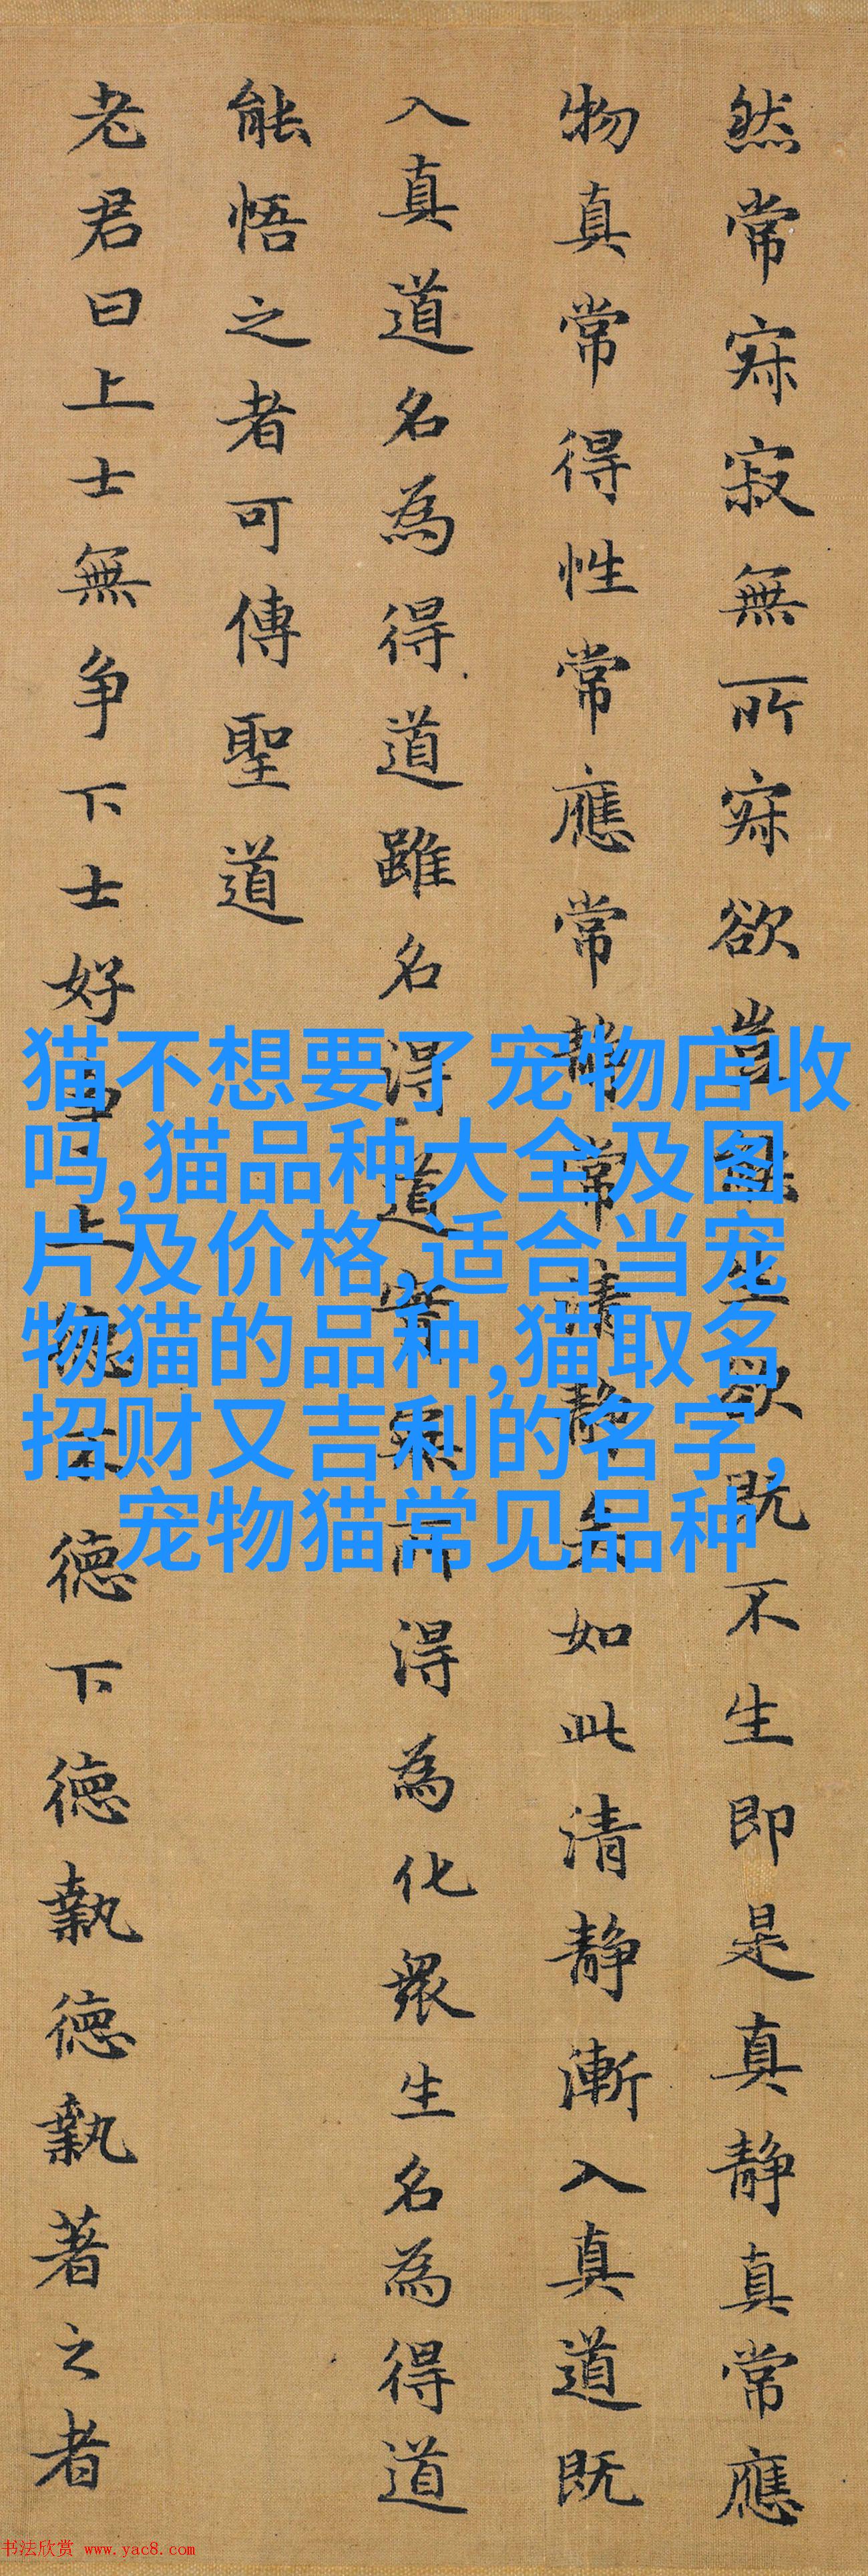 然常寂寂無所寂欲豈能生欲既不生即是真静真常應
物真常得性常應常静常清静矣如此清静漸入真道既
入真道名為得道雖名得道實無所得為化衆生名為得道
能悟之者可傳聖道
老君曰上士無争下士好争上德不德下德執德執著之者
猫不想要了宠物店收
吗,猫品种大全及图
片及价格,适合当宠
物猫的品种,猫取名
招财又吉利的名字,
宠物猫常见品种
书法欣赏 www.yac8.com